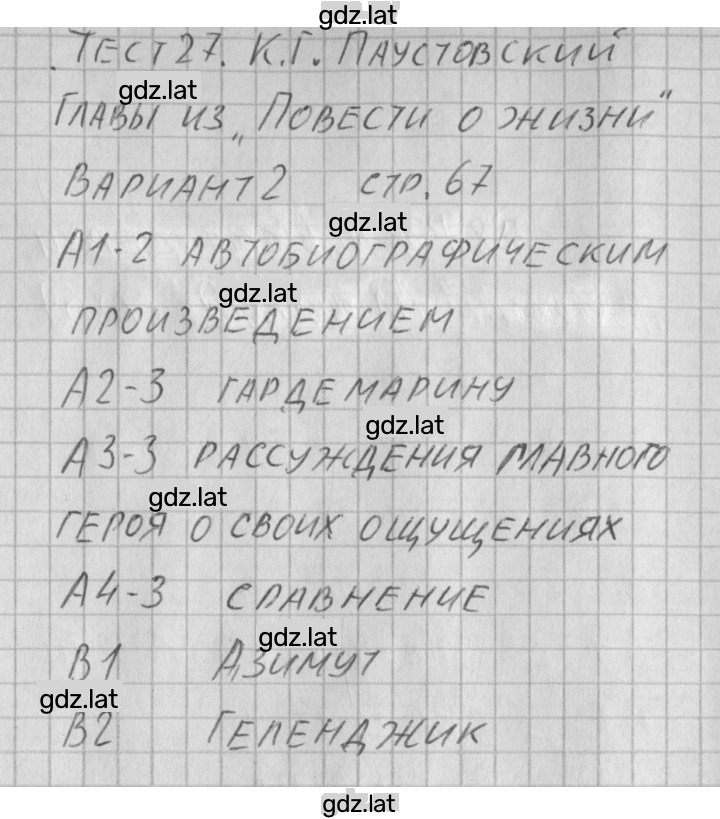 gdz.lat
Тест 27. К.Г. Паустовский
gdz.lat
Главы из „Повести о жизни"
Вариант 2 стр. 67
gdz.lat
А1-2 автобиографическим
gdz.lat
произведением
А2-3 гардемарину
gdz.lat
А3-3 рассуждения главного
gdz.lat
героя о своих ощущениях
А4-3 сравнение
gdz.lat
В1 Азимут
gdz.lat
В2 Геленджик
gdz.lat